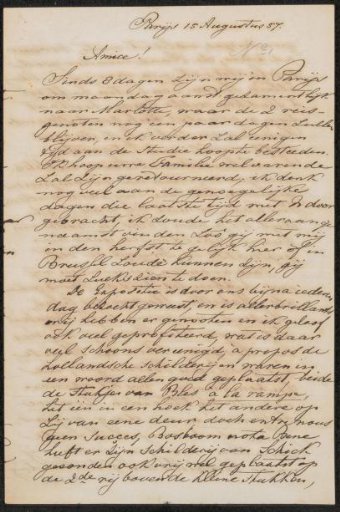 Parijs 15 Augustus 57.
Amice!
Sinds 8 dagen zijn wij in Parijs
om maandag avond gezamentlijk
naar Marlotte, waar de 2 reis
genooten nog een paar dagen zullen
blijven, en ik verder zal eenigen
tijd aan de studie hoopte besteeden.
Ik hoop uwe Familie welvarende
zal zijn geretourneerd, ik denk
nog veel aan de genoegelijke
dagen die laatste tijd met U door
gebracht, ik zoude het alleraange
naamst vinden zoo gij met mij
in den herfst te gelijk hier of in
Brussel zoude kunnen zijn, gij
moet zien te doen.
De Expositie is door ons bijna iederen
dag bezocht geweest en is allerbrillantst
wij hebben er genooten en ik geloof
ook veel geprofiteerd, wat is daar
veel schoons vereenigd, a propos de
hollandsche schilderijen waren in
een woord allen goed geplaatst, beide
de stukjes van Bles a la rampe,
het een in een hoek het andere op
zij van eene deur doch entre nous
geen succes, Bosboom
heeft er zijn schilderij van Schick
gezonden ook vrij wel geplaatst op
de 2de rij bovende kleine stukken,